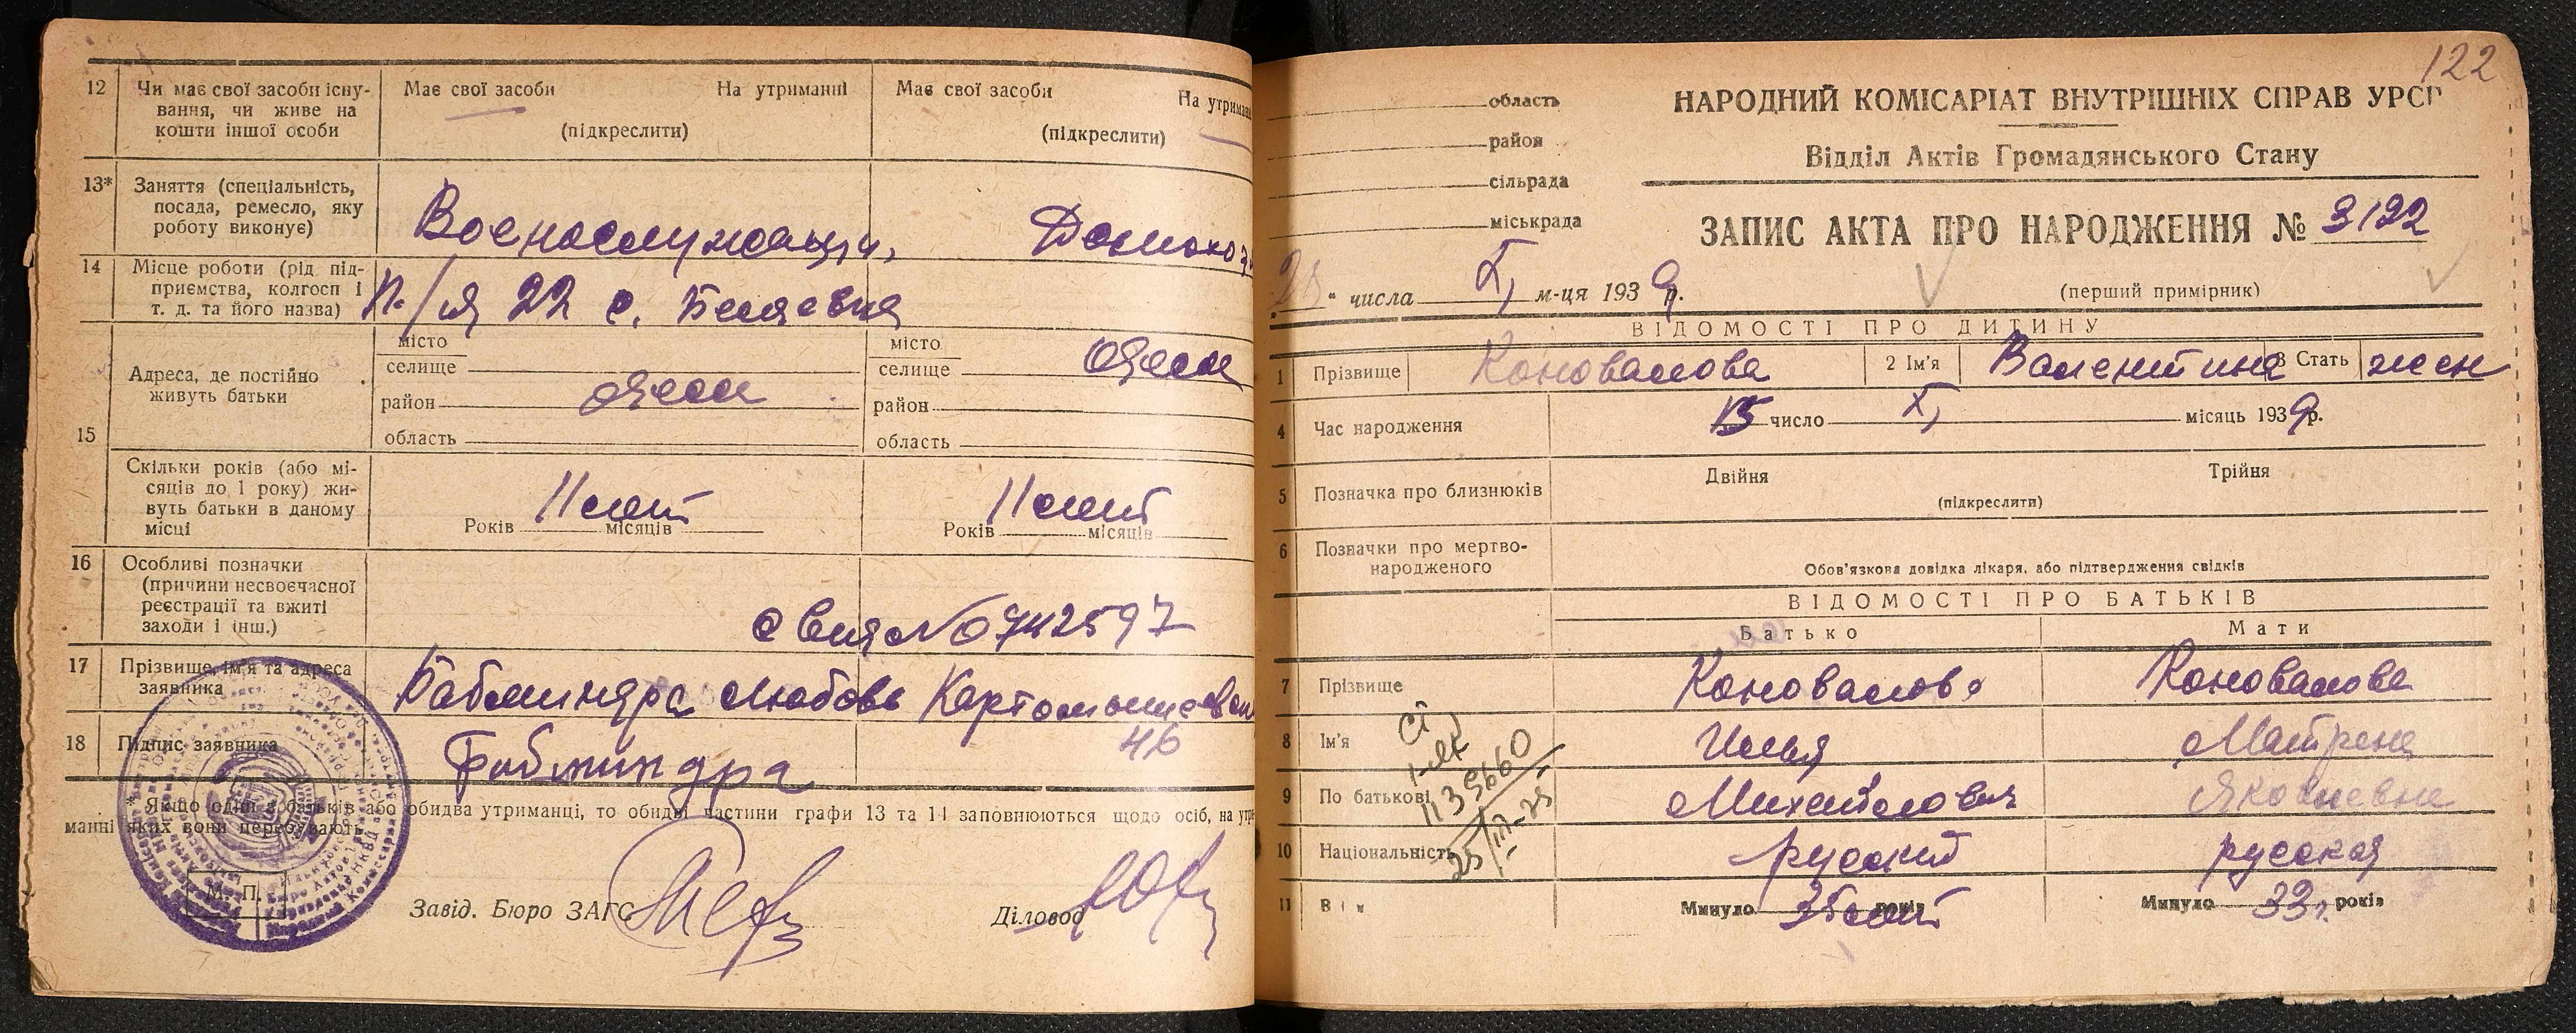 12 Чи має свої засоби існу-
вання, чи живе на
кошти іншої особи
Має свої засоби На утриманні
(підкреслити)
Має свої засоби На утриман
(підкреслити)
13* Заняття (спеціальність,
посада, ремесло, яку
роботу виконує)
Военнослужащи,
Домохоз
14 Місце роботи (рід під-
приємства, колгосп і
т. д. та його назва)
П./я 22 с. Беляевка
15 Адреса, де постійно
живуть батьки
місто
селище
район
область
Одесса
місто
селище
район
область
Одесса
Скільки років (або мі-
сяців до 1 року) жи-
вуть батьки в даному
місці
Років 11 лет місяців
Років 11 лет місяців
16 Особливі позначки
(причини несвоєчасної
реєстрації та вжиті
заходи і інш.)
№ 0742597
17 Прізвище, ім'я та адреса
заявника
Любовь Картамышевск
46
18 Підпис заявника
* Якщо один з батьків або обидва утриманці, то обидві частини графи 13 та 14 заповнюються щодо осіб, на утри
манні яких вони перебувають.
М. П.
Завід. Бюро ЗАГС
Діловод
122
область
район
сільрада
міськрада
НАРОДНИЙ КОМІСАРІАТ ВНУТРІШНІХ СПРАВ УРСР
Відділ Актів Громадянського Стану
ЗАПИС АКТА ПРО НАРОДЖЕННЯ № 3122
числа X, м-ця 1939 р.
(перший примірник)
ВІДОМОСТІ ПРО ДИТИНУ
1 Прізвище Коновалова 2 Ім'я Валентина 3 Стать жен
4 Час народження 15 число X, місяць 1939 р.
5 Позначка про близнюків Двійня Трійня
(підкреслити)
6 Позначки про мертво-
народженого
Обов'язкова довідка лікаря, або підтвердження свідків
ВІДОМОСТІ ПРО БАТЬКІВ
Батько Мати
7 Прізвище Коновалов Коновалова
8 Ім'я Илья Матрена
9 По батькові Михайлович Яковлевна
10 Національність русский русская
11 Вік Минуло 35 лет років Минуло 33 г. років
1135660
25/III-75